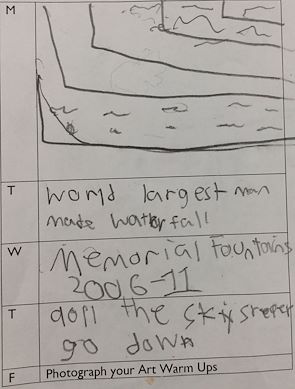 M
T
world largest man
made waterfall
W
Memorial Fountains
2006-11
T
go down
F Photograph your Art Warm Ups